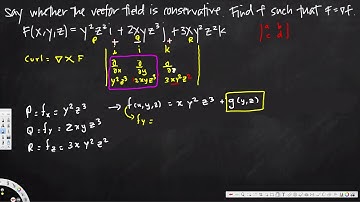 Say whether the vector field is conservative. Find f such that F = ∇f.
F(x,y,z) = y²z³i + 2xyz³j + 3xy²z²k
P Q R
|a b|
|c d|
+ - +
curl = ∇ x F
i j k
∂/∂x ∂/∂y ∂/∂z
y²z³ 2xyz³ 3xy²z²
P = fx = y²z³ → f(x,y,z) = x y² z³ + g(y,z)
Q = fy = 2xyz³ fy =
R = fz = 3xy²z²